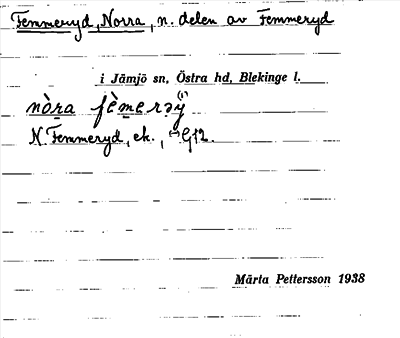 Femmeryd, Norra, n. delen av Femmeryd
i Jämjö sn, Östra hd, Blekinge l.
nòra fèmerəy (1)
N. Femmeryd, ek.,
Märta Pettersson 1938